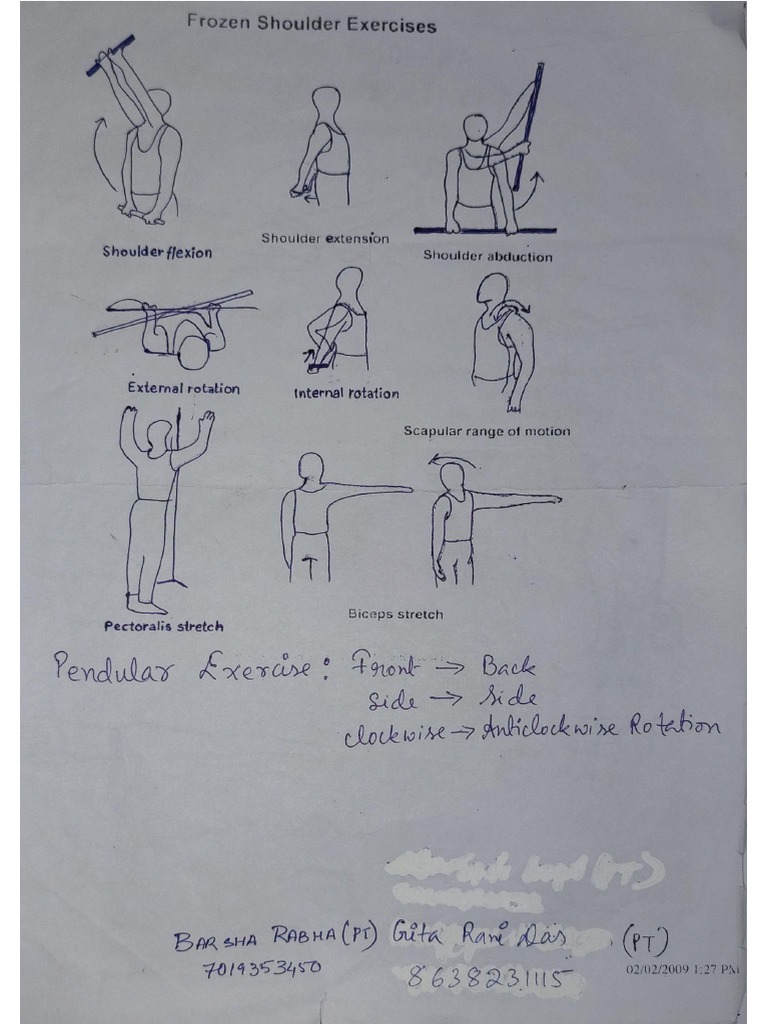 Frozen Shoulder Exercises
Shoulder flexion
Shoulder extension
Shoulder abduction
External rotation
Internal rotation
Scapular range of motion
Pectoralis stretch
Biceps stretch
Pendular Exercise: Front → Back
Side → Side
Clockwise → Anticlockwise Rotation
BARSHA RABHA (PT) Gita Rani Das (PT)
7019353450 8638231115
02/02/2009 1:27 PM